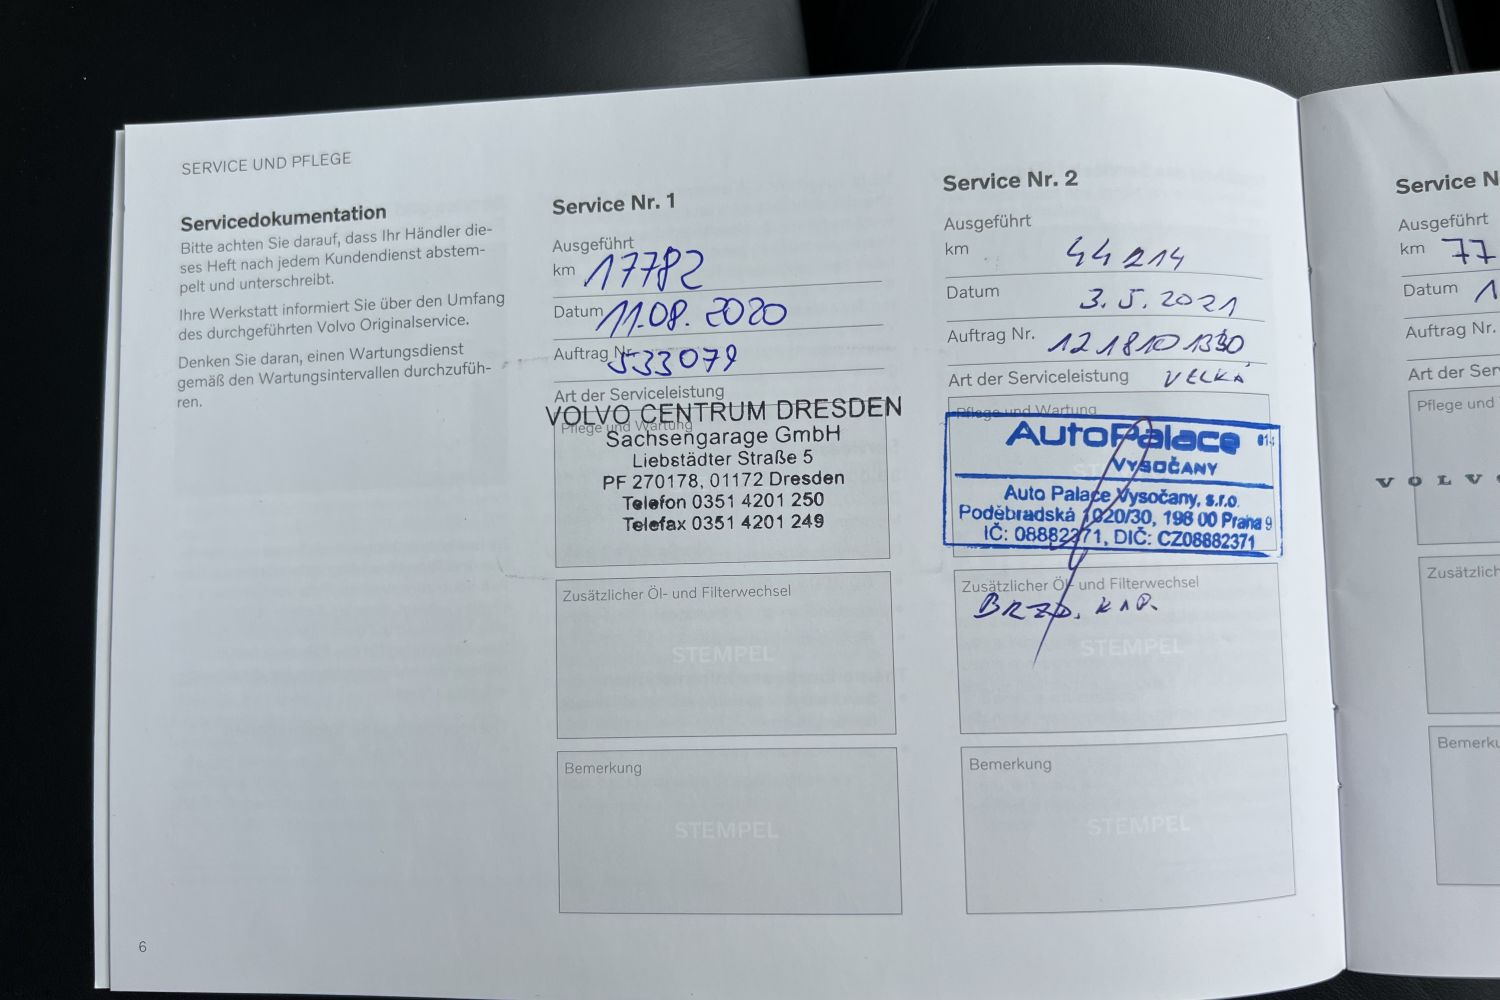 SERVICE UND PFLEGE
Servicedokumentation
Bitte achten Sie darauf, dass Ihr Händler die-
ses Heft nach jedem Kundendienst abstem-
pelt und unterschreibt.
Ihre Werkstatt informiert Sie über den Umfang
des durchgeführten Volvo Originalservice.
Denken Sie daran, einen Wartungsdienst
gemäß den Wartungsintervallen durchzufüh-
ren.
6
Service Nr. 1
Ausgeführt
km 17782
Datum 11.08.2020
Auftrag Nr. 533079
Art der Serviceleistung
Pflege und Wartung
VOLVO CENTRUM DRESDEN
Sachsengarage GmbH
Liebstädter Straße 5
PF 270178, 01172 Dresden
Telefon 0351 4201 250
Telefax 0351 4201 249
Zusätzlicher Öl- und Filterwechsel
STEMPEL
Bemerkung
STEMPEL
Service Nr. 2
Ausgeführt
km 44214
Datum 3.5.2021
Auftrag Nr.
Art der Serviceleistung VELKÁ
Pflege und Wartung
AutoPalace 814
VYSOČANY
Auto Palace Vysočany, s.r.o.
Poděbradská 1020/30, 198 00 Praha 9
IČ: 08882371, DIČ: CZ08882371
Zusätzlicher Öl- und Filterwechsel
BRZD. KAP.
STEMPEL
Bemerkung
STEMPEL
Service N
Ausgeführt
km 77
Datum 1
Auftrag Nr.
Art der Ser
Pflege und
VOLV
Zusätzlich
Bemerku